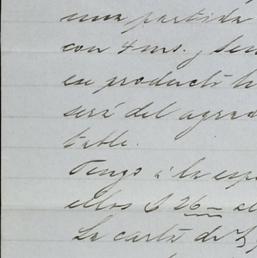 una partida
con 4 ms. y
ese producto
será del agra
table.
Tengo á la esp
ellos $ 26
La carta de